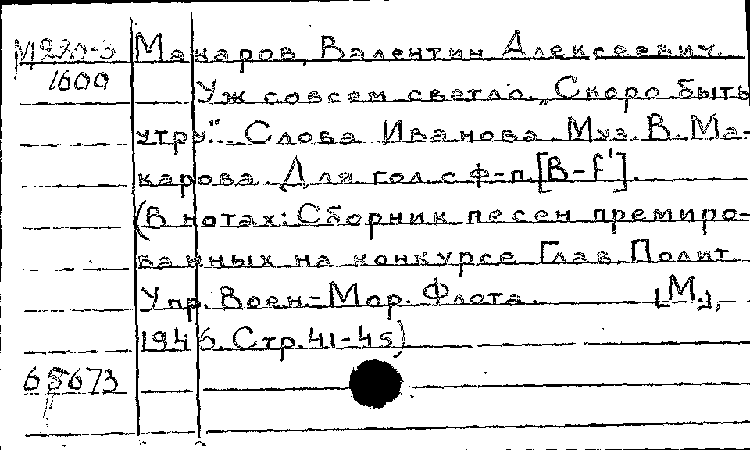 Макаров, Валентин Алексеевич.
1600
Уж совсем светло „Скоро быть
утру". Слова Иванова. Муз. В. Ма-
карова. Для гол. с ф-п. [B-f¹].
(В нотах: Сборник песен премиро-
ванных на конкурсе Глав. Полит
Упр. Воен-Мор. Флота. [М.],
1946. Стр. 41-45)
65673